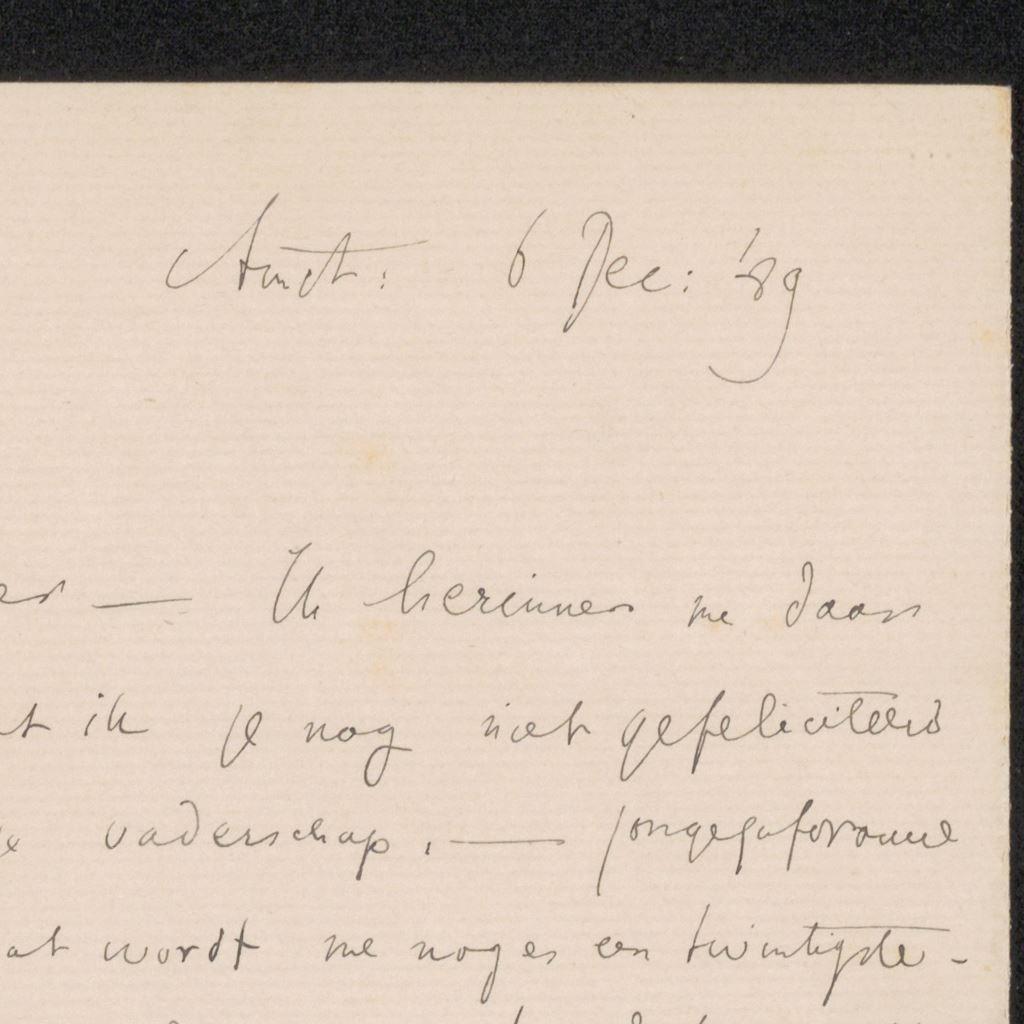 Amst: 6 Dec: '89
er — Ik herinner me daar
t ik je nog niet gefeliciteerd
vaderschap. —
at wordt me nog es een twintigste-